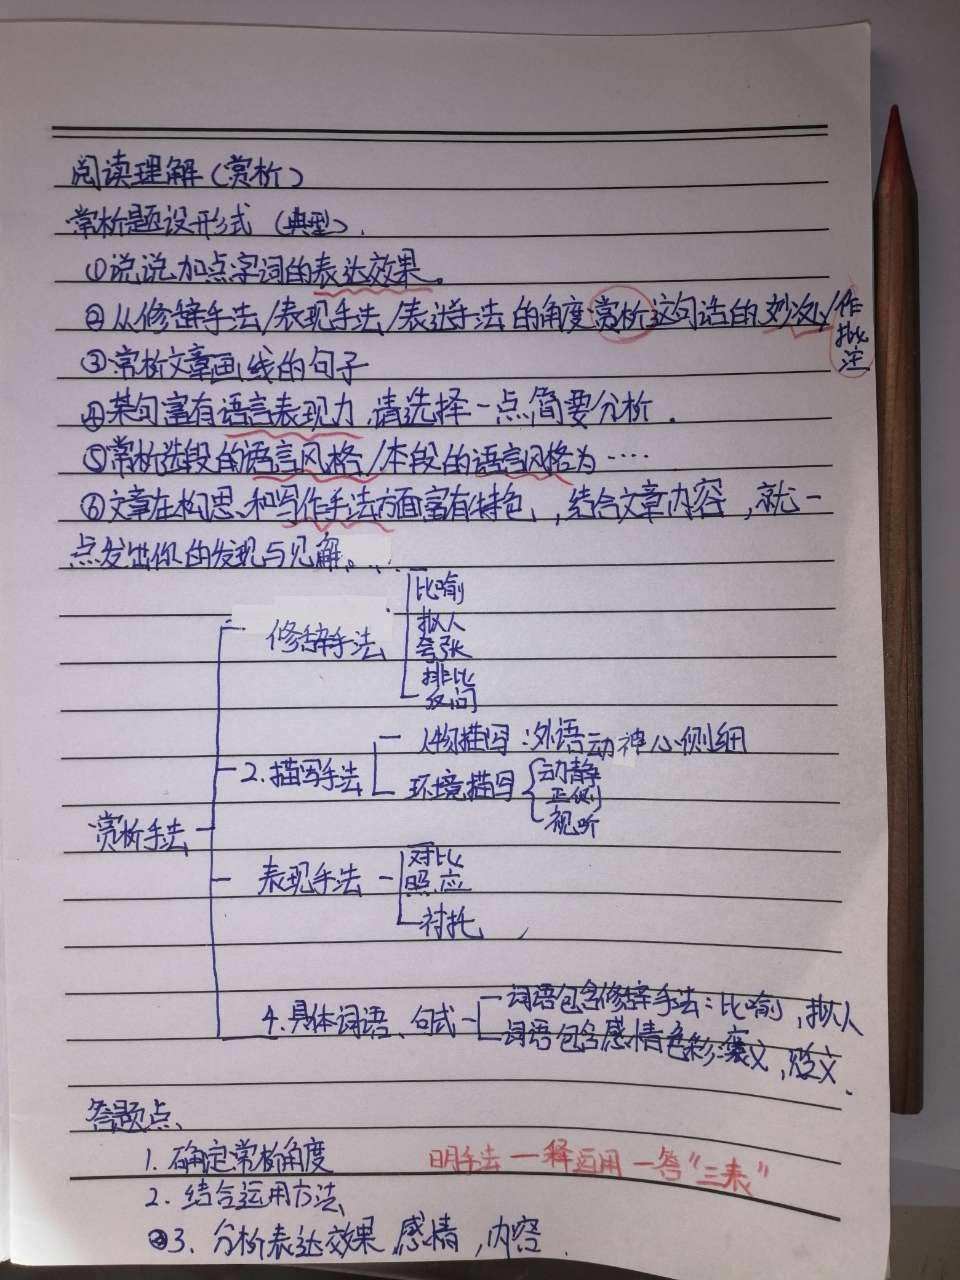 阅读理解(赏析)
赏析题设形式 (典型).
①说说加点字词的表达效果。
②从修辞手法/表现手法/表达手法的角度赏析这句话的妙处/作批注
③赏析文章画线的句子
④某句富有语言表现力,请选择一点简要分析.
⑤赏析选段的语言风格/本段的语言风格为……
⑥文章在构思、和写作手法方面富有特色,,结合文章内容,就一
点发出你的发现与见解。
修辞手法
比喻
拟人
夸张
排比
反问
2.描写手法
人物描写:外语动神心侧细
环境描写
动静
正侧
视听
赏析手法
表现手法
对比
照应
衬托
4.具体词语、句式
词语包含修辞手法:比喻,拟人
词语包含感情色彩:褒义,贬义.
答题点、
1.确定赏析角度
明手法一释运用一答"三表"
2.结合运用方法
3.分析表达效果,感情,内容.